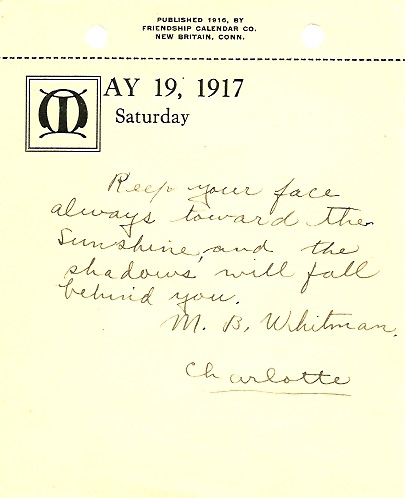 PUBLISHED 1916, BY
FRIENDSHIP CALENDAR CO.
NEW BRITAIN, CONN.
MAY 19, 1917
Saturday
Keep your face
always toward the
sunshine, and the
shadows will fall
behind you.
M. B. Whitman.
Charlotte